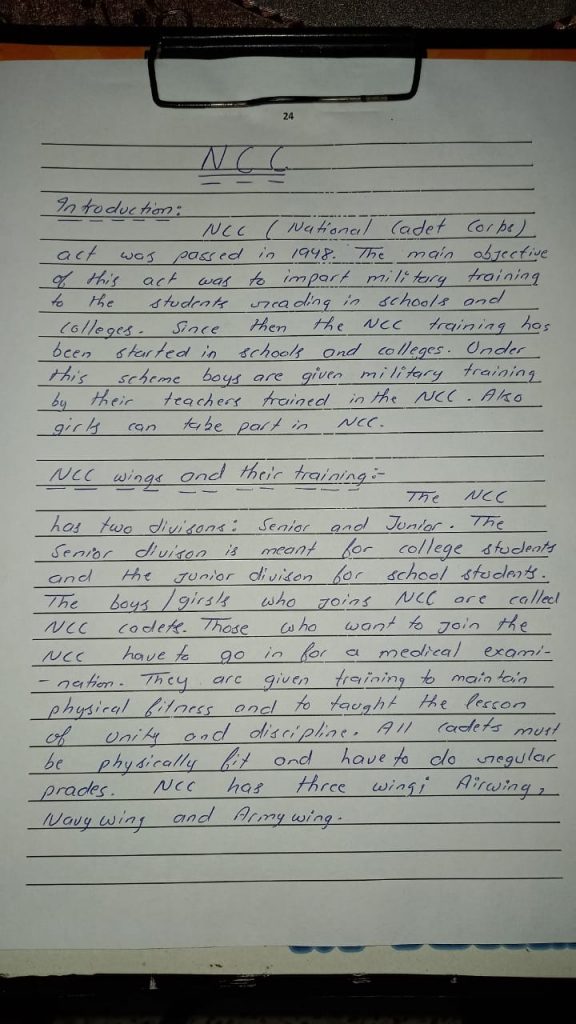 24
NCC
Introduction:
NCC (National Cadet Corps)
act was passed in 1948. The main objective
of this act was to impart military training
to the students reading in schools and
colleges. Since then the NCC training has
been started in schools and colleges. Under
this scheme boys are given military training
by their teachers trained in the NCC. Also
girls can take part in NCC.
NCC wings and their training:-
The NCC
has two divisons: Senior and Junior. The
Senior divison is meant for college students
and the Junior divison for school students.
The boys/girsls who joins NCC are called
NCC cadets. Those who want to join the
NCC have to go in for a medical exami-
-nation. They are given training to maintain
physical fitness and to taught the lesson
of unity and discipline. All cadets must
be physically fit and have to do regular
prades. NCC has three wing; Airwing,
Navy wing and Army wing.